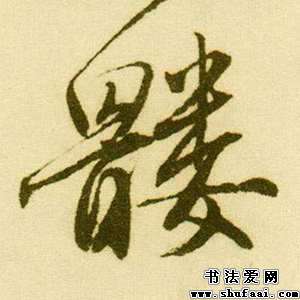 髅
书法爱网
www.shufaai.com